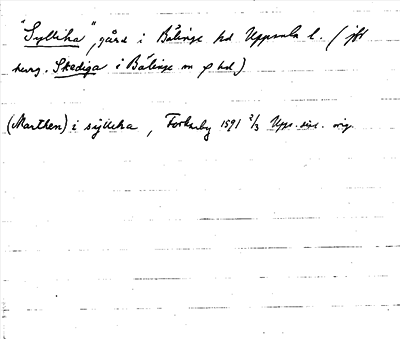 "Syllika", gård i Bälinge hd Uppsala l. (jft
herg. Skediga i Bälinge sn o hd)
(Marthen) i sÿlleka, Forkarby 1591 2/3 Upps. dipl. orig.